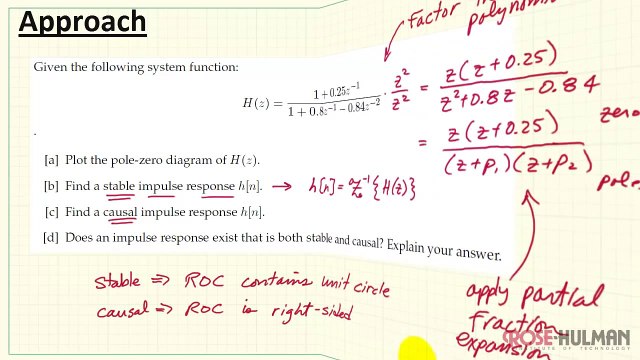 Approach
Factor
polynom
Given the following system function:
H(z) = \frac{1 + 0.25z^{-1}}{1 + 0.8z^{-1} - 0.84z^{-2}} \cdot \frac{z^2}{z^2} = \frac{z(z+0.25)}{z^2+0.8z-0.84}
zero
= \frac{z(z+0.25)}{(z+p_1)(z+p_2)}
pole
[a] Plot the pole-zero diagram of H(z).
[b] Find a stable impulse response h[n]. → h[n] = {H(z)}
[c] Find a causal impulse response h[n].
[d] Does an impulse response exist that is both stable and causal? Explain your answer.
stable ⇒ ROC contains unit circle
causal ⇒ ROC is right-sided
apply partial
fraction
expansion
ROSE-HULMAN
INSTITUTE OF TECHNOLOGY